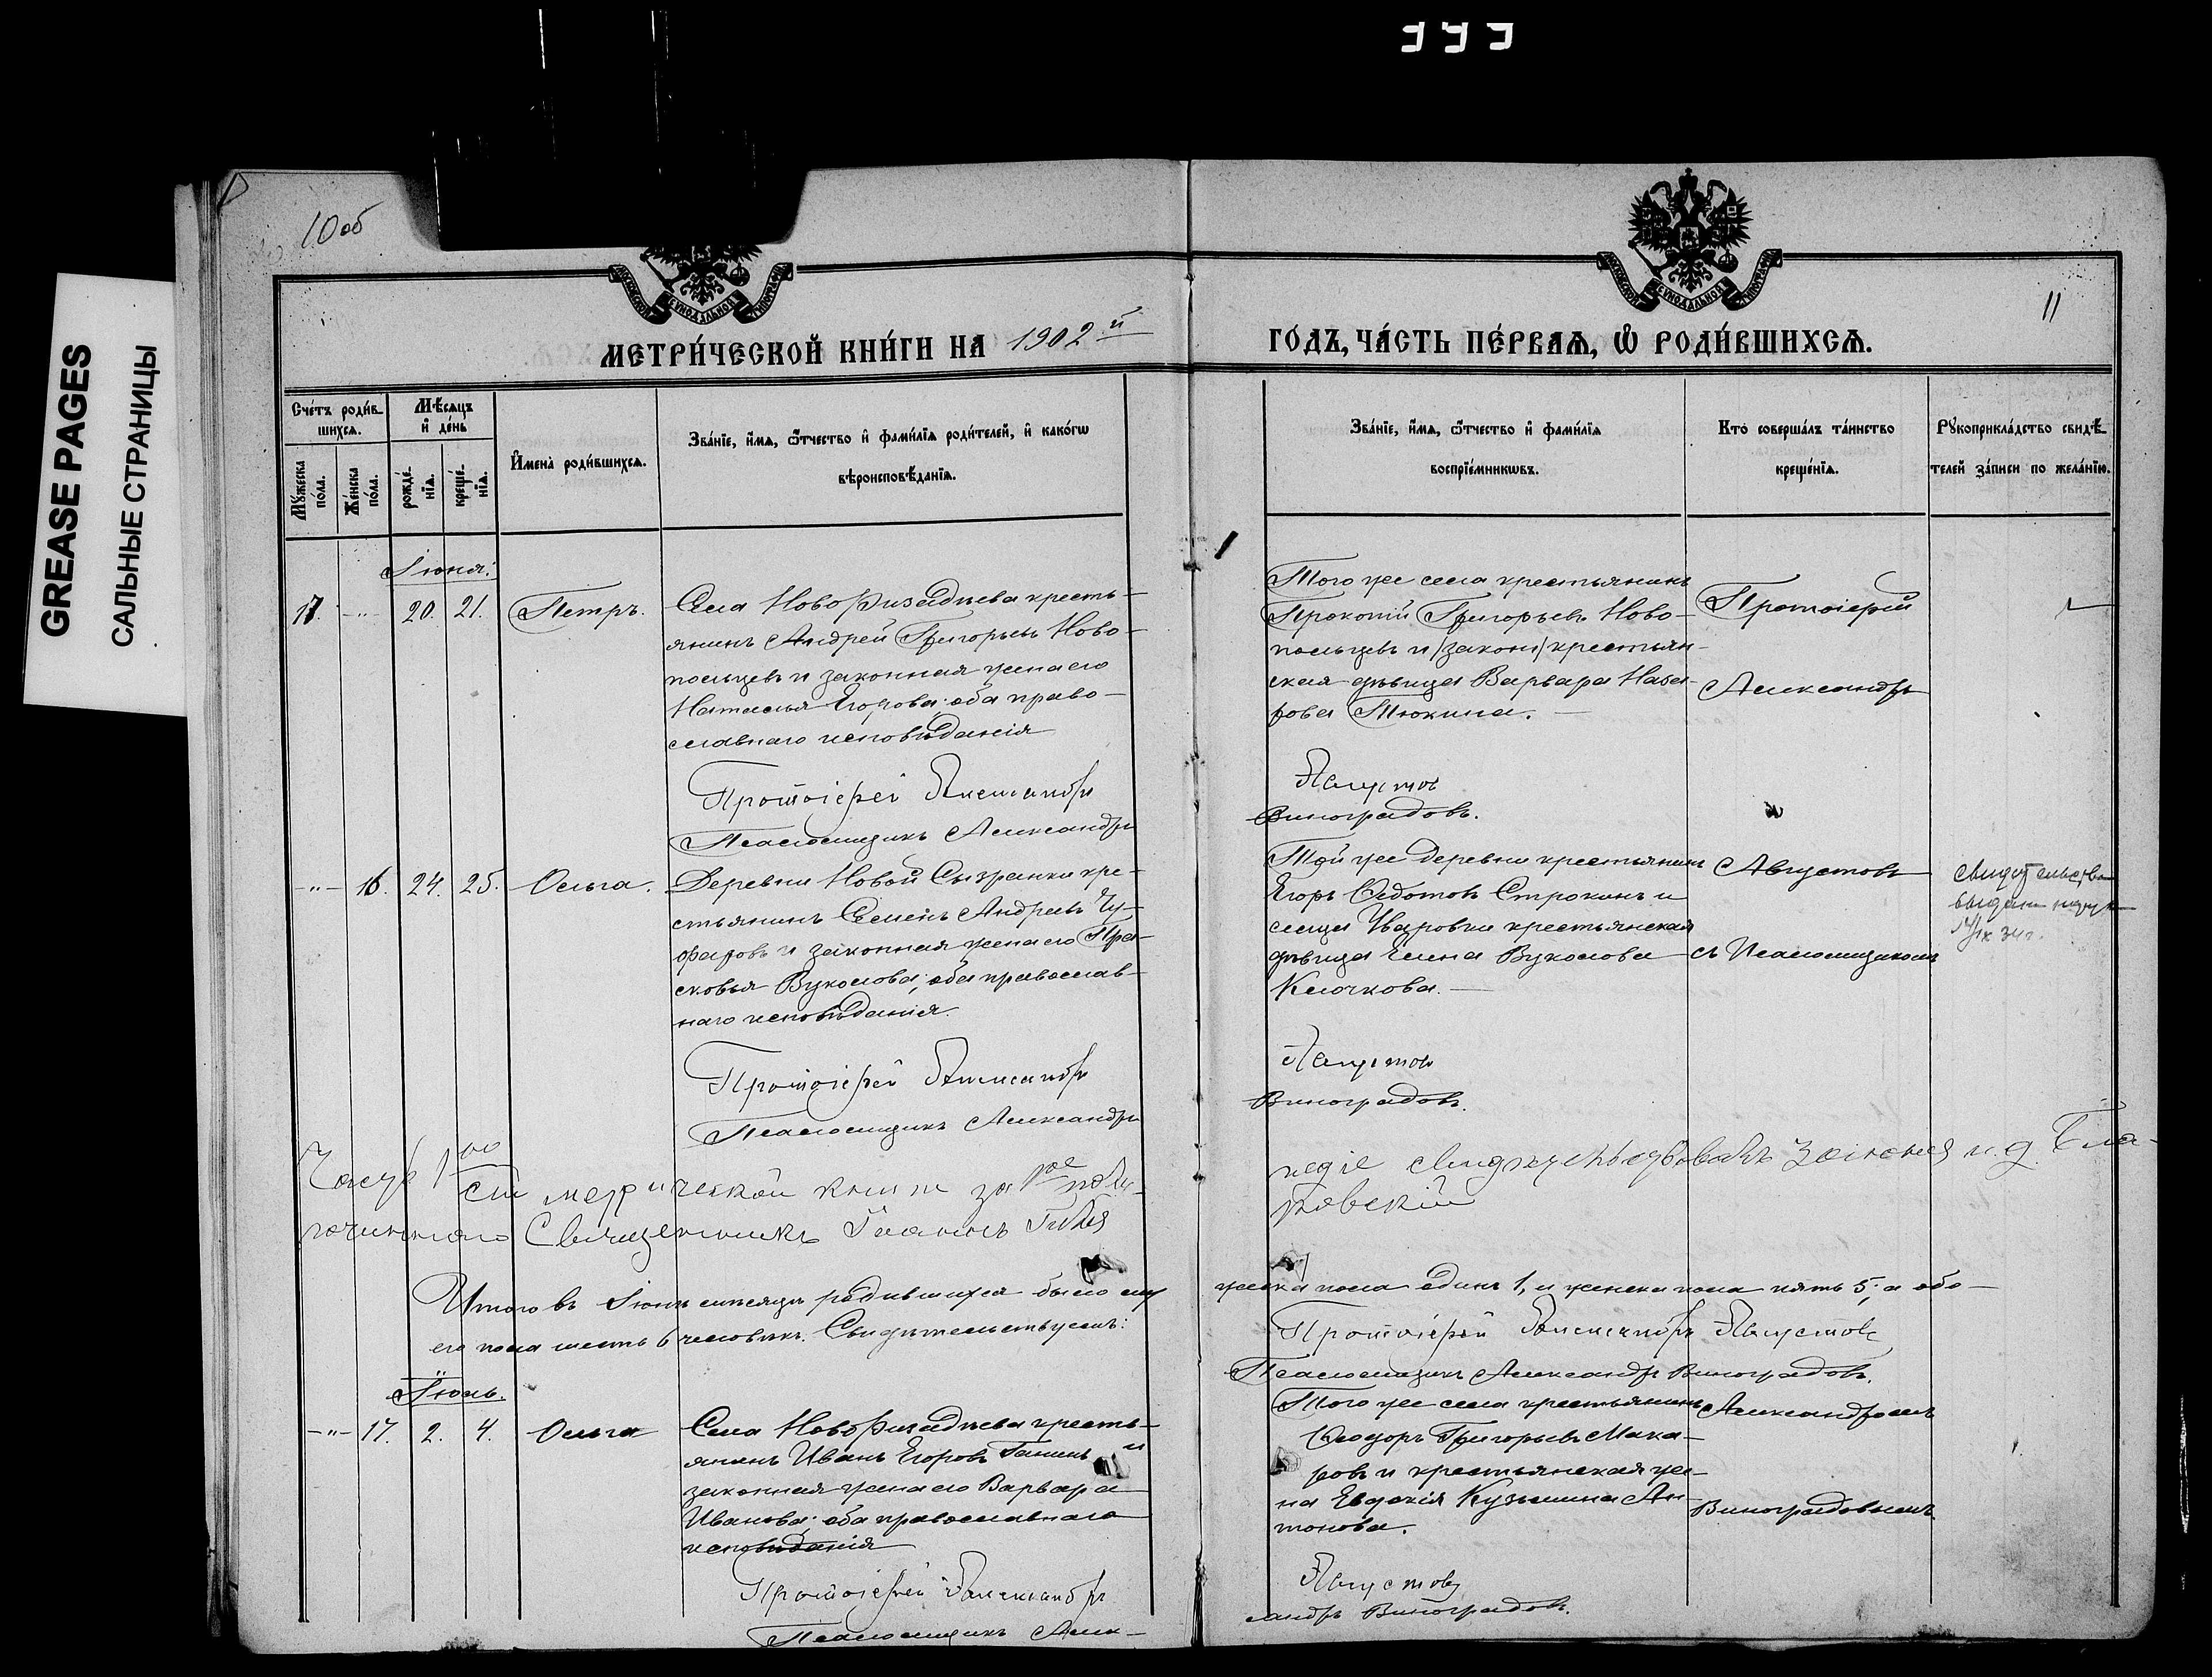 GREASE PAGES
САЛЬНЫЕ СТРАНИЦЫ
10 об
11
МЕТРИ́ЧЕСКОЙ КНИ́ГИ НА 1902 й
ГО́ДЪ, ЧА́СТЬ ПЕ́РВАѦ, Ѽ РОДИ́ВШИХСѦ.
Сче́тъ роди́в-
шихсѧ.
Мѣ́сѧцъ
и҆ де́нь
Му́жеска
по́ла.
Же́нска
по́ла.
рожде́-
нїѧ.
креще́-
нїѧ.
И҆мена̀ роди́вшихсѧ.
Зва́нїе, и҆́мѧ, ѻ҆́тчество и҆ фами́лїѧ роди́телей, и҆ како́гѡ
вѣроисповѣ́данїѧ.
Зва́нїе, и҆́мѧ, ѻ҆́тчество и҆ фами́лїѧ
воспрїе́мникѡвъ.
Кто̀ соверша́лъ та́инство
креще́нїѧ.
Рꙋкоприкла́дство свидѣ́-
телей за́писи по жела́нїю.
Іюня.
17. -"- 20. 21. Петръ.
Села Новофизадѣева кресть-
янинъ Андрей Григорьевъ Ново-
польцевъ и законная жена его
Наталья Егорова: оба право-
славнаго исповѣданія
Протоіерей Александръ
Псаломщикъ Александръ
Того же села крестьянинъ
Прокопій Григорьевъ Ново-
польцевъ и /закон/ крестьян-
ская дѣвица Варвара Наза-
рова Тюкина. —
Августовъ
Виноградовъ.
Протоіерей
Александръ
-"- 16. 24. 25. Ольга.
Деревни Новой Сызранки кре-
стьянинъ Семенъ Андреевъ Чу-
фаровъ и законная жена его Пра-
сковья Вуколова; оба православ-
наго исповѣданія.
Протоіерей Александръ
Псаломщикъ Александръ
Той же деревни крестьянинъ
Егоръ Ѳедотовъ Строкинъ и
сельца Уваровки крестьянская
дѣвица Елена Вуколова
Клочкова. —
Августовъ
Виноградовъ.
Августовъ
съ Псаломщикомъ
свидетельство
выдано
Часть 1ю сей метрической книги за 1ое полу-
годіе свидѣтельствовалъ за
гочиннаго Священникъ Іоаннъ
Итого въ Іюнѣ мѣсяцѣ родившихся было му
жска пола одинъ 1, и женска пола пять 5; а обо-
его пола шесть 6 человѣкъ. Свидѣтельствуемъ:
Протоіерей Александръ Августовъ
Псаломщикъ Александръ Виноградовъ.
Іюль.
-"- 17. 2. 4. Ольга
Села Новофизадѣева кресть-
янинъ Иванъ Егоровъ и
законная жена его Варвара
Иванова; оба православнаго
исповѣданія
Протоіерей Александръ
Псаломщикъ Алек-
Того же села крестьянинъ
Ѳеодоръ Григорьевъ Мака-
ровъ и крестьянская же-
на Евдокія Кузьмина Ан-
тонова.
Августовъ
сандръ Виноградовъ.
Александромъ
Виноградовымъ